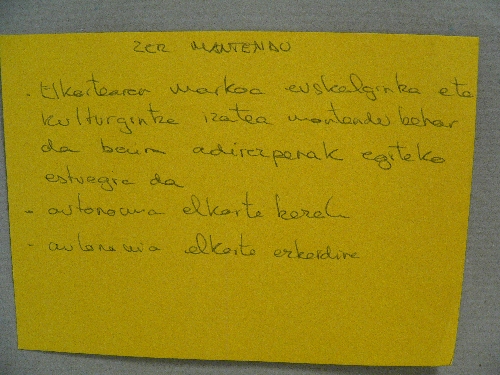 ZER MANTENDU
. Elkartearen markoa euskalgintza eta
kulturgintza izatea mantendu behar
da baina adierazpenak egiteko
estuegia da
- autonomia elkarte
- autonomia elkarte